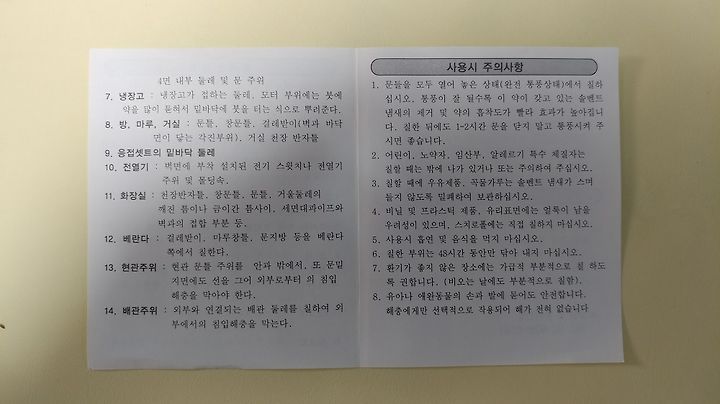 4면 내부 둘레 및 문 주위
7. 냉장고 : 냉장고가 접하는 둘레. 모터 부위에는 붓에
약을 많이 묻혀서 밑바닥에 붓을 터는 식으로 뿌려준다.
8. 방, 마루, 거실 : 문틀, 창문틀, 걸레받이(벽과 바닥
면이 닿는 각진부위). 거실 천장 반자틀
9. 응접셋트의 밑바닥 둘레
10. 전열기 : 벽면에 부착 설치된 전기 스윗치나 전열기
주위 및 몰딩속.
11. 화장실 : 천장반자틀, 창문틀, 문틀, 거울둘레의
깨진 틈이나 금이간 틈사이. 세면대파이프와
벽과의 접합 부분 등.
12. 베란다 : 걸레받이. 마루창틀, 문지방 등을 베란다
쪽에서 칠한다.
13. 현관주위 : 현관 문틀 주위를 안과 밖에서, 또 문밑
지면에도 선을 그어 외부로부터 의 침입
해충을 막아야 한다.
14. 배관주위 : 외부와 연결되는 배관 둘레를 칠하여 외
부에서의 침입해충을 막는다.
사용시 주의사항
1. 문들을 모두 열어 놓은 상태(완전 통풍상태)에서 칠하
십시오. 통풍이 잘 될수록 이 약이 갖고 있는 솔벤트
냄새의 제거 및 약의 흡착도가 빨라 효과가 높아집니
다. 칠한 뒤에도 1-2시간 문을 닫지 말고 통풍시켜 주
시면 좋습니다.
2. 어린이, 노약자, 임산부, 알레르기 특수 체질자는
칠할 때는 밖에 나가 있거나 또는 주의하여 주십시오.
3. 칠할 때에 우유제품, 곡물가루는 솔벤트 냄새가 스며
들지 않도록 밀폐하여 보관하십시오.
4. 비닐 및 프라스틱 제품, 유리표면에는 얼룩이 남을
우려성이 있으며, 스치로폴에는 직접 칠하지 마십시오.
5. 사용시 흡연 및 음식을 먹지 마십시오.
6. 칠한 부위는 48시간 동안만 닦아 내지 마십시오.
7. 환기가 좋지 않은 장소에는 가급적 부분적으로 칠 하도
록 권합니다. (비오는 날에도 부분적으로 칠함).
8. 유아나 애완동물의 손과 발에 묻어도 안전합니다.
해충에게만 선택적으로 작용되어 해가 전혀 없습니다